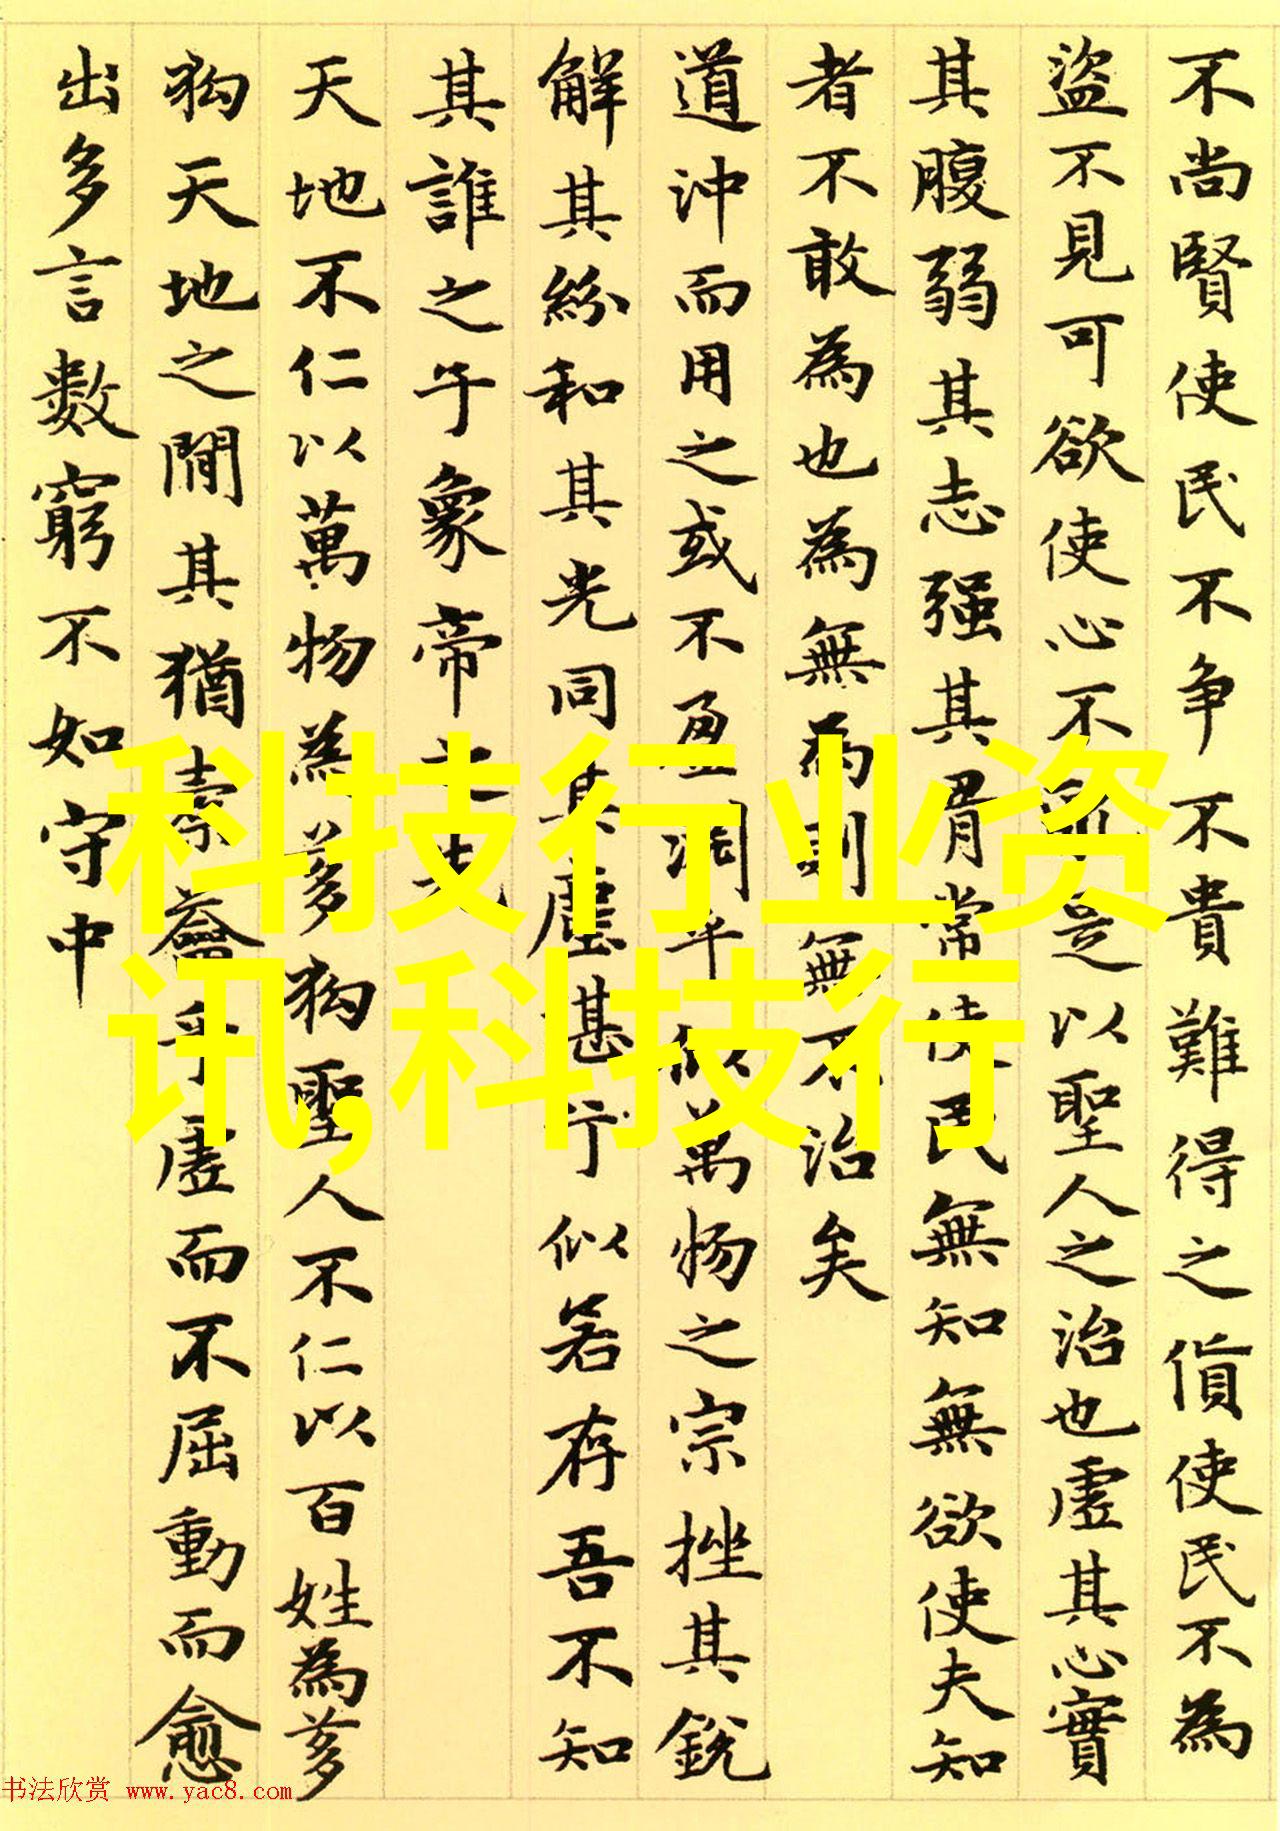 不尚賢使民不争不貴難得之貨使民不為
盜不見可欲使心不亂是以聖人之治也虛其心實
其腹弱其志强其骨常使民無知無欲使夫知
者不敢為也為無為則無不治矣
道沖而用之或不盈淵乎似萬物之宗挫其銳
解其紛和其光同其塵湛兮似若存吾不知
其誰之子象帝之先
天地不仁以萬物為芻狗聖人不仁以百姓為芻
狗天地之間其猶橐龠乎虛而不屈動而愈
出多言數窮不如守中
科技行业资
讯,科技行
书法欣赏 www.yac8.com